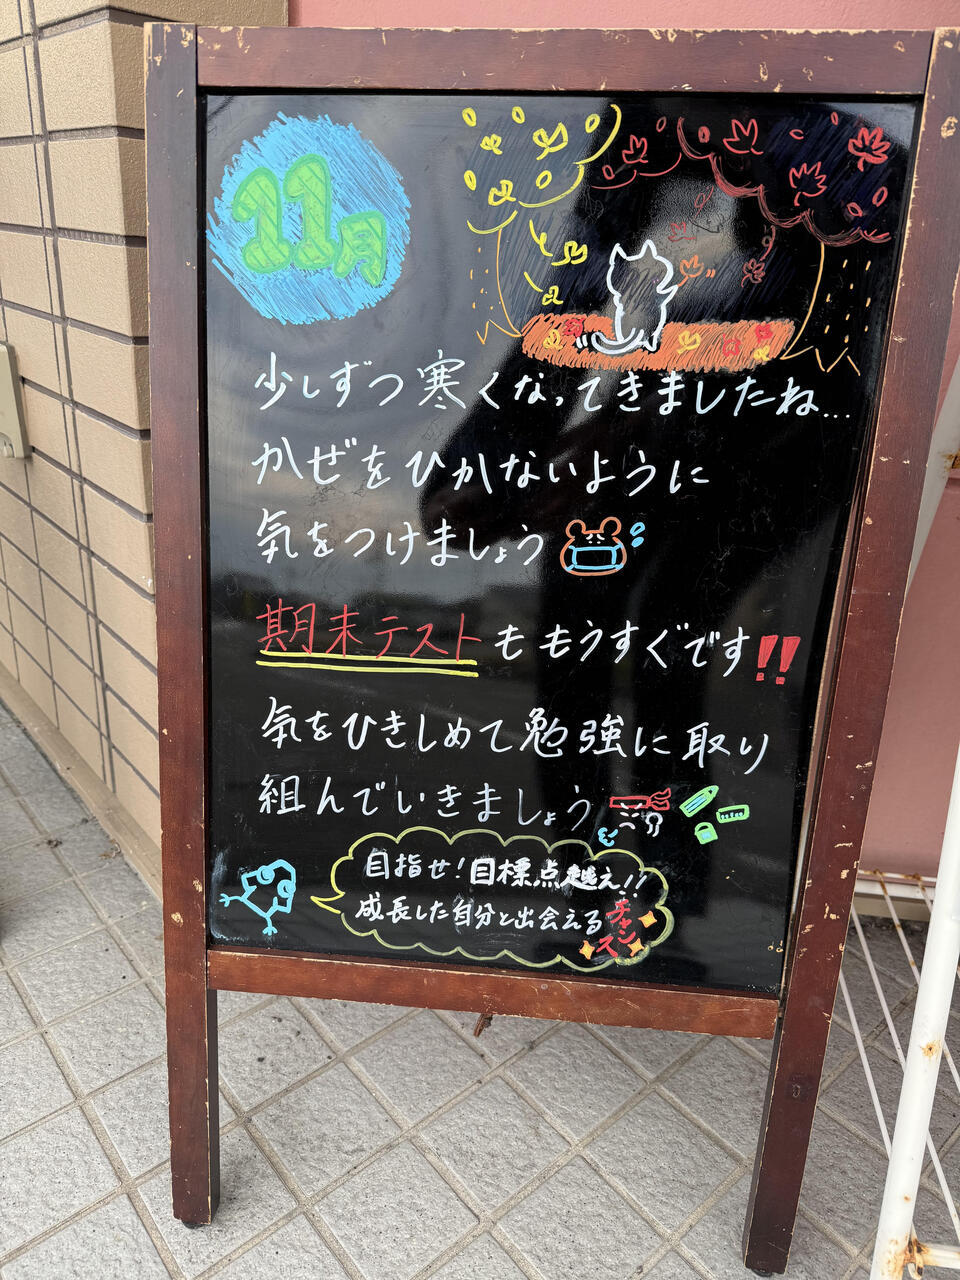 11月
少しずつ寒くなってきましたね...
かぜをひかないように
気をつけましょう
期末テストももうすぐです!!
気をひきしめて勉強に取り
組んでいきましょう
目指せ!目標点越え!!
成長した自分と出会えるチャンス